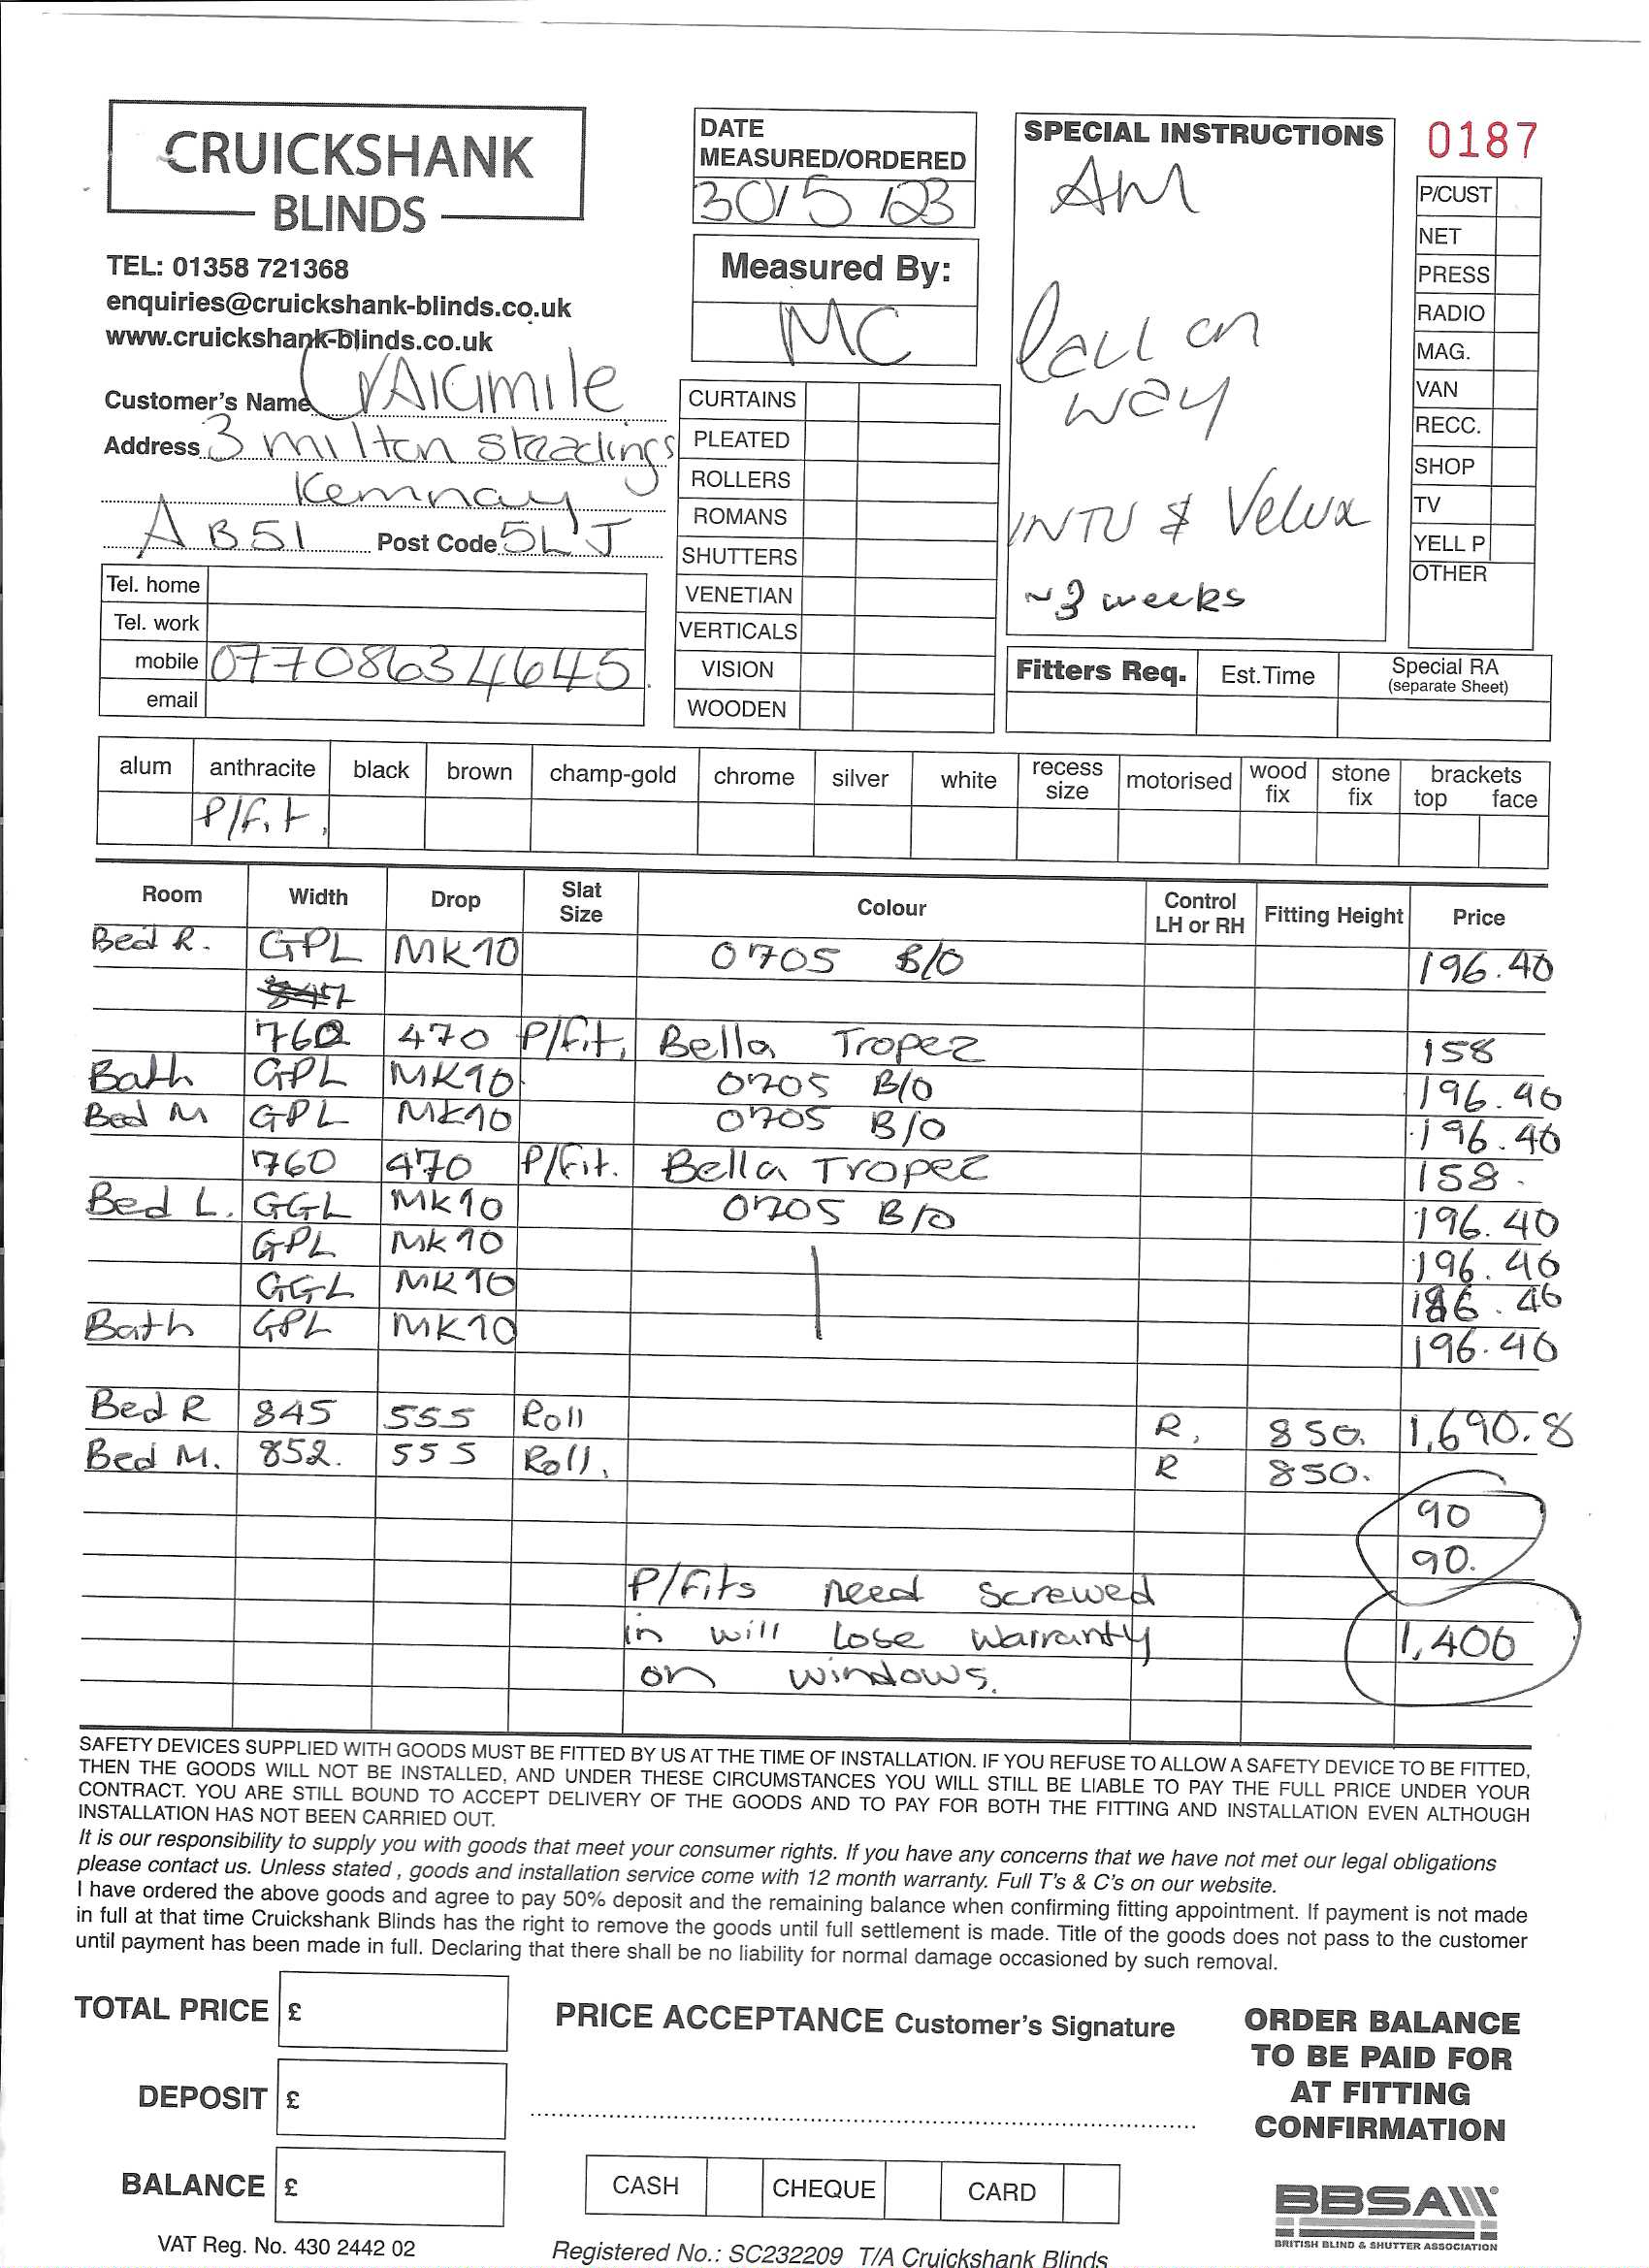 CRUICKSHANK
BLINDS
TEL: 01358 721368
enquiries@cruickshank-blinds.co.uk
www.cruickshank-blinds.co.uk
DATE
MEASURED/ORDERED
30/5/23
Measured By:
MC
SPECIAL INSTRUCTIONS
AM
Call on
way
INTU & Velux
~3 weeks
0187
P/CUST
NET
PRESS
RADIO
MAG.
VAN
RECC.
SHOP
TV
YELL P
OTHER
Customer's Name Craigmile
Address 3 Milton Steadings
Kemnay
AB51 Post Code 5LJ
Tel. home
Tel. work
mobile 07708634645
email
CURTAINS
PLEATED
ROLLERS
ROMANS
SHUTTERS
VENETIAN
VERTICALS
VISION
WOODEN
Fitters Req. Est.Time Special RA
(separate Sheet)
alum anthracite black brown champ-gold chrome silver white recess size motorised wood fix stone fix brackets top face
P/Fit.
Room Width Drop Slat Size Colour Control LH or RH Fitting Height Price
Bed R. GPL MK10 0705 B/O 196.40
847
760 470 P/Fit. Bella Tropez 158
Bath GPL MK10 0705 B/O 196.40
Bed M GPL MK10 0705 B/O 196.40
760 470 P/Fit. Bella Tropez 158.
Bed L. GGL MK10 0705 B/O 196.40
GPL MK10 196.40
GGL MK10 196.40
Bath GPL MK10 196.40
Bed R 845 555 Roll R, 850. 1,690.8
Bed M. 852. 555 Roll. R 850.
90
90.
P/Fits need screwed
in will lose warranty 1,400
on windows.
SAFETY DEVICES SUPPLIED WITH GOODS MUST BE FITTED BY US AT THE TIME OF INSTALLATION. IF YOU REFUSE TO ALLOW A SAFETY DEVICE TO BE FITTED,
THEN THE GOODS WILL NOT BE INSTALLED, AND UNDER THESE CIRCUMSTANCES YOU WILL STILL BE LIABLE TO PAY THE FULL PRICE UNDER YOUR
CONTRACT. YOU ARE STILL BOUND TO ACCEPT DELIVERY OF THE GOODS AND TO PAY FOR BOTH THE FITTING AND INSTALLATION EVEN ALTHOUGH
INSTALLATION HAS NOT BEEN CARRIED OUT.
It is our responsibility to supply you with goods that meet your consumer rights. If you have any concerns that we have not met our legal obligations
please contact us. Unless stated , goods and installation service come with 12 month warranty. Full T's & C's on our website.
I have ordered the above goods and agree to pay 50% deposit and the remaining balance when confirming fitting appointment. If payment is not made
in full at that time Cruickshank Blinds has the right to remove the goods until full settlement is made. Title of the goods does not pass to the customer
until payment has been made in full. Declaring that there shall be no liability for normal damage occasioned by such removal.
TOTAL PRICE £
DEPOSIT £
BALANCE £
PRICE ACCEPTANCE Customer's Signature
CASH CHEQUE CARD
ORDER BALANCE
TO BE PAID FOR
AT FITTING
CONFIRMATION
BBSA
BRITISH BLIND & SHUTTER ASSOCIATION
VAT Reg. No. 430 2442 02
Registered No.: SC232209 T/A Cruickshank Blinds